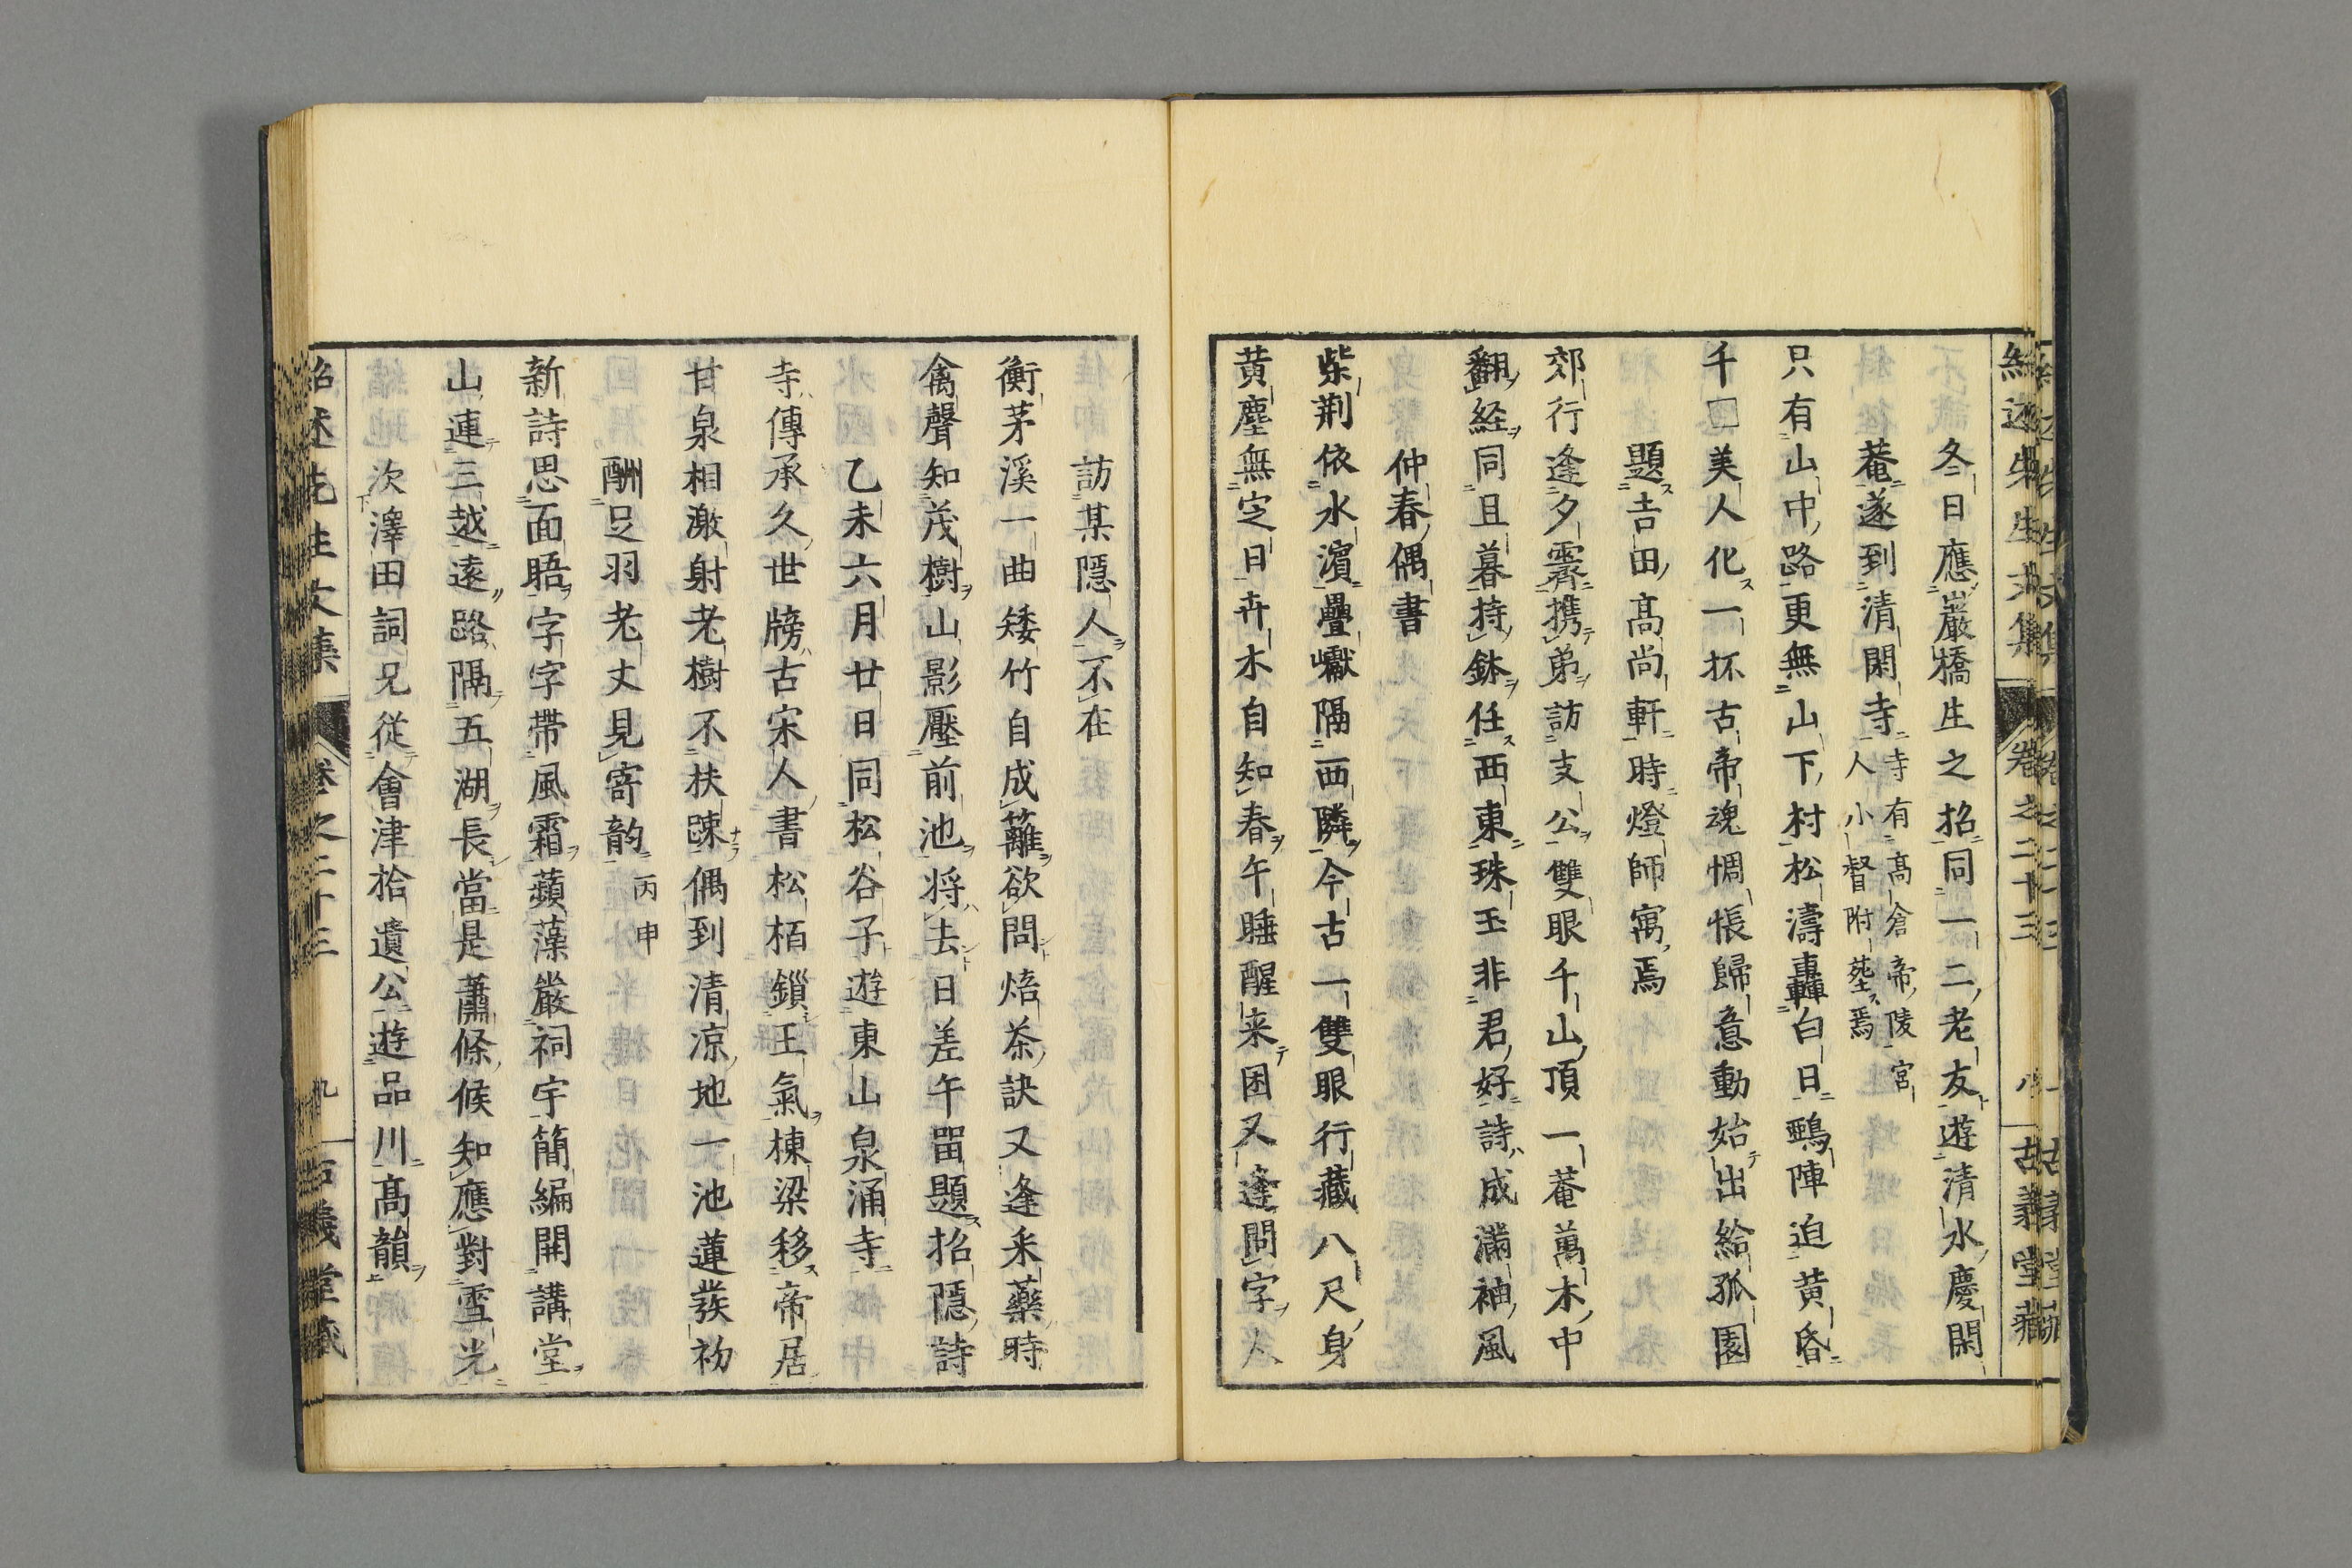 紹述先生文集 卷之二十三 八 古義堂藏
冬日應巖橋生之招同一二老友遊清水慶閑
菴遂到清閑寺 寺有髙倉帝陵宮
人小督附塟焉
只有山中路更無山下村松濤轟白日鴉陣迫黄昏
千□美人化一抔古帝魂惆悵歸意動始出給孤園
題吉田髙尚軒時燈師寓焉
郊行逢夕霽携弟訪支公雙眼千山頂一菴萬木中
翻経同且暮持鉢任西東珠玉非君好詩成滿袖風
仲春偶書
柴荆依水濵疊巘隔西隣今古一雙眼行藏八尺身
黄塵無定日卉木自知春午睡醒来困又逢問字人
訪某隱人不在
衡茅溪一曲矮竹自成籬欲問焙茶訣又逢采藥時
禽聲知茂樹山影壓前池将去日差午留題招隱詩
乙未六月廿日同松谷子遊東山泉涌寺
寺傳承久世牓古宋人書松栢鎻王氣棟梁移帝居
甘泉相激射老樹不扶踈偶到清凉地一池蓮蕟初
酬足羽老丈見寄韵 丙申
新詩思面晤字字帶風霜蘋藻嚴祠宇簡編開講堂
山連三越遠路隔五湖長當是蕭條候知應對雪光
次澤田詞兄從會津拾遺公遊品川髙韻
紹述先生文集 卷之二十三 九 古義堂藏